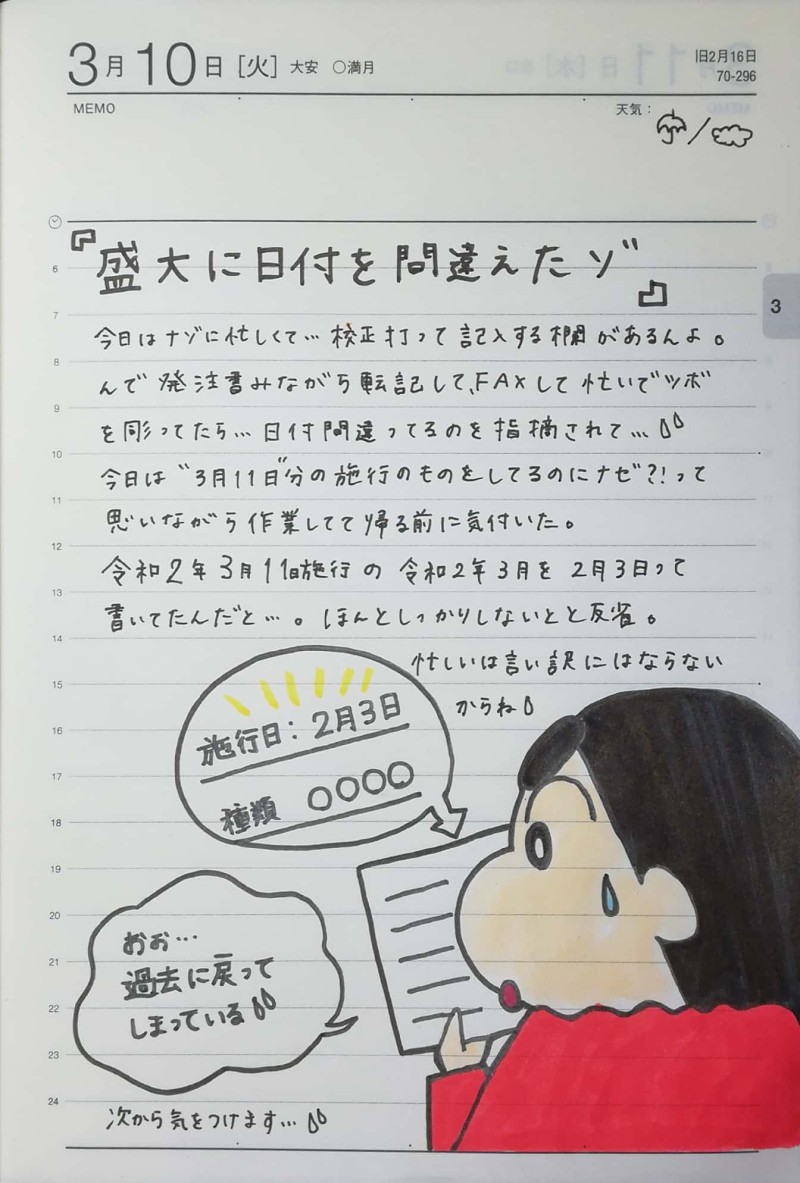 3月10日[火] 大安 ○満月
旧2月16日
70-296
MEMO
天気：
『盛大に日付を間違えたゾ"』
今日はナゾに忙しくて… 校正打って記入する欄があるんよ。
んで発注書みながら転記して、FAXして忙いでツボ
を彫ってたら…日付間違ってるのを指摘されて…
今日は"3月11日"分の施行のものをしてるのにナゼ?!って
思いながら作業してて帰る前に気付いた。
令和2年3月11日施行の令和2年3月を2月3日って
書いてたんだと…。ほんとしっかりしないとと反省。
忙しいは言い訳にはならない
からね
施行日：2月3日
種類 ○○○○
おお…
過去に戻って
しまっている
次から気をつけます…
3
6
7
8
9
10
11
12
13
14
15
16
17
18
19
20
21
22
23
24